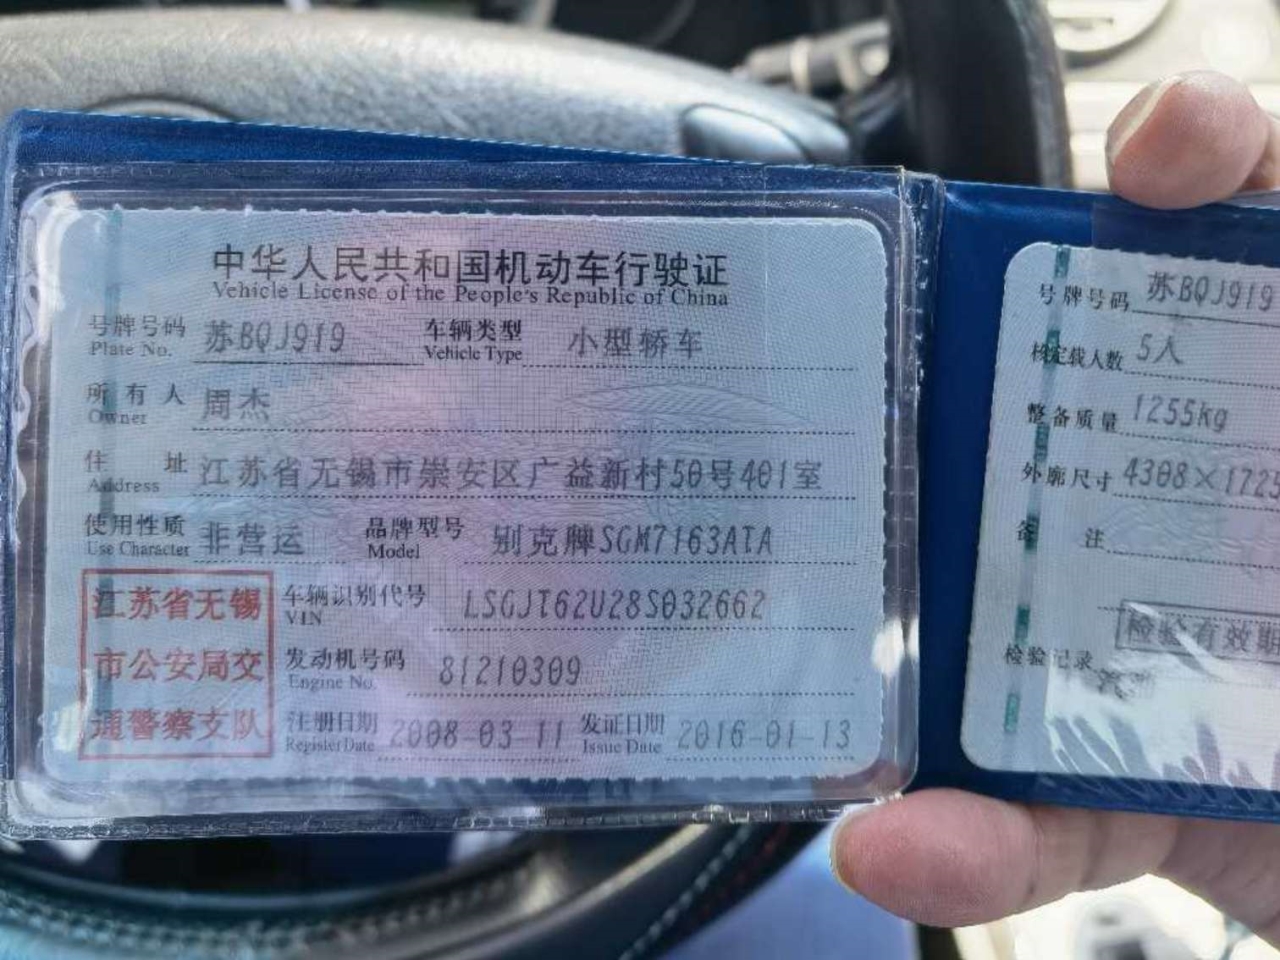 中华人民共和国机动车行驶证
Vehicle License of the People's Republic of China
号牌号码 苏BQJ919 车辆类型 小型轿车
Plate No. Vehicle Type
所有人 周杰
Owner
住址 江苏省无锡市崇安区广益新村50号401室
Address
使用性质 非营运 品牌型号 别克牌SGM7163ATA
Use Character Model
江苏省无锡
市公安局交
通警察支队
车辆识别代号 LSGJT62U28S032662
VIN
发动机号码 81210309
Engine No.
注册日期 2008-03-11 发证日期 2016-01-13
Register Date Issue Date
号牌号码 苏BQJ919
核定载人数 5人
整备质量 1255kg
外廓尺寸 4308×1725
备注
检验有效期
检验记录